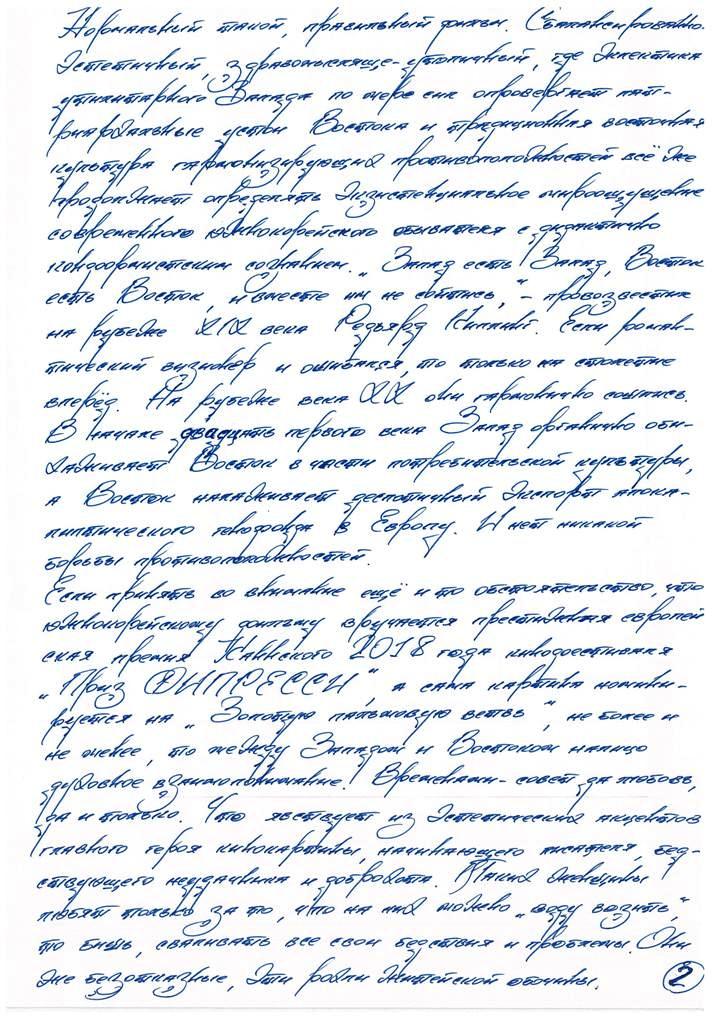 Нормальный такой, правильный фильм. Сбалансированно.
Эстетичный, здравомысляще-утопичный, где эклектика
утилитарного Запада по мере сил опровергает пат-
риархальные устои Востока и традиционная восточная
культура гармонизирующих противоположностей всё же
продолжает определять экзистенциальное мироощущение
современного южнокорейского обывателя с дидактично
конформистским сознанием. „Запад есть Запад, Восток
есть Восток, и вместе им не сойтись,“ – провозвестил
на рубеже XIX века Редьярд Киплинг. Если роман-
тический визионер и ошибался, то только на столетие
вперёд. На рубеже века XX они гармонично сошлись.
В начале двадцать первого века Запад органично оби-
хаживает Восток в части потребительской культуры,
а Восток налаживает деспотичный экспорт апока-
липтического генофонда в Европу. И нет никакой
борьбы противоположностей.
Если принять во внимание ещё и то обстоятельство, что
южнокорейскому фильму вручается престижная европей
ская премия Каннского 2018 года кинофестиваля
„Приз ФИПРЕССИ“, а сама картина номини-
руется на „Золотую пальмовую ветвь“, не более и
не менее, то между Западом и Востоком налицо
духовное взаимопонимание. Временами – совет да любовь,
да и только. Что явствует из эстетических акцентов
главного героя кинокартины, начинающего писателя, бед-
ствующего неудачника и доброхота. Таких женщины
любят только за то, что на них можно „воду возить,“
то бишь, сваливать все свои бедствия и проблемы. Они
же безотказные, эти рохли житейской обочины.
2